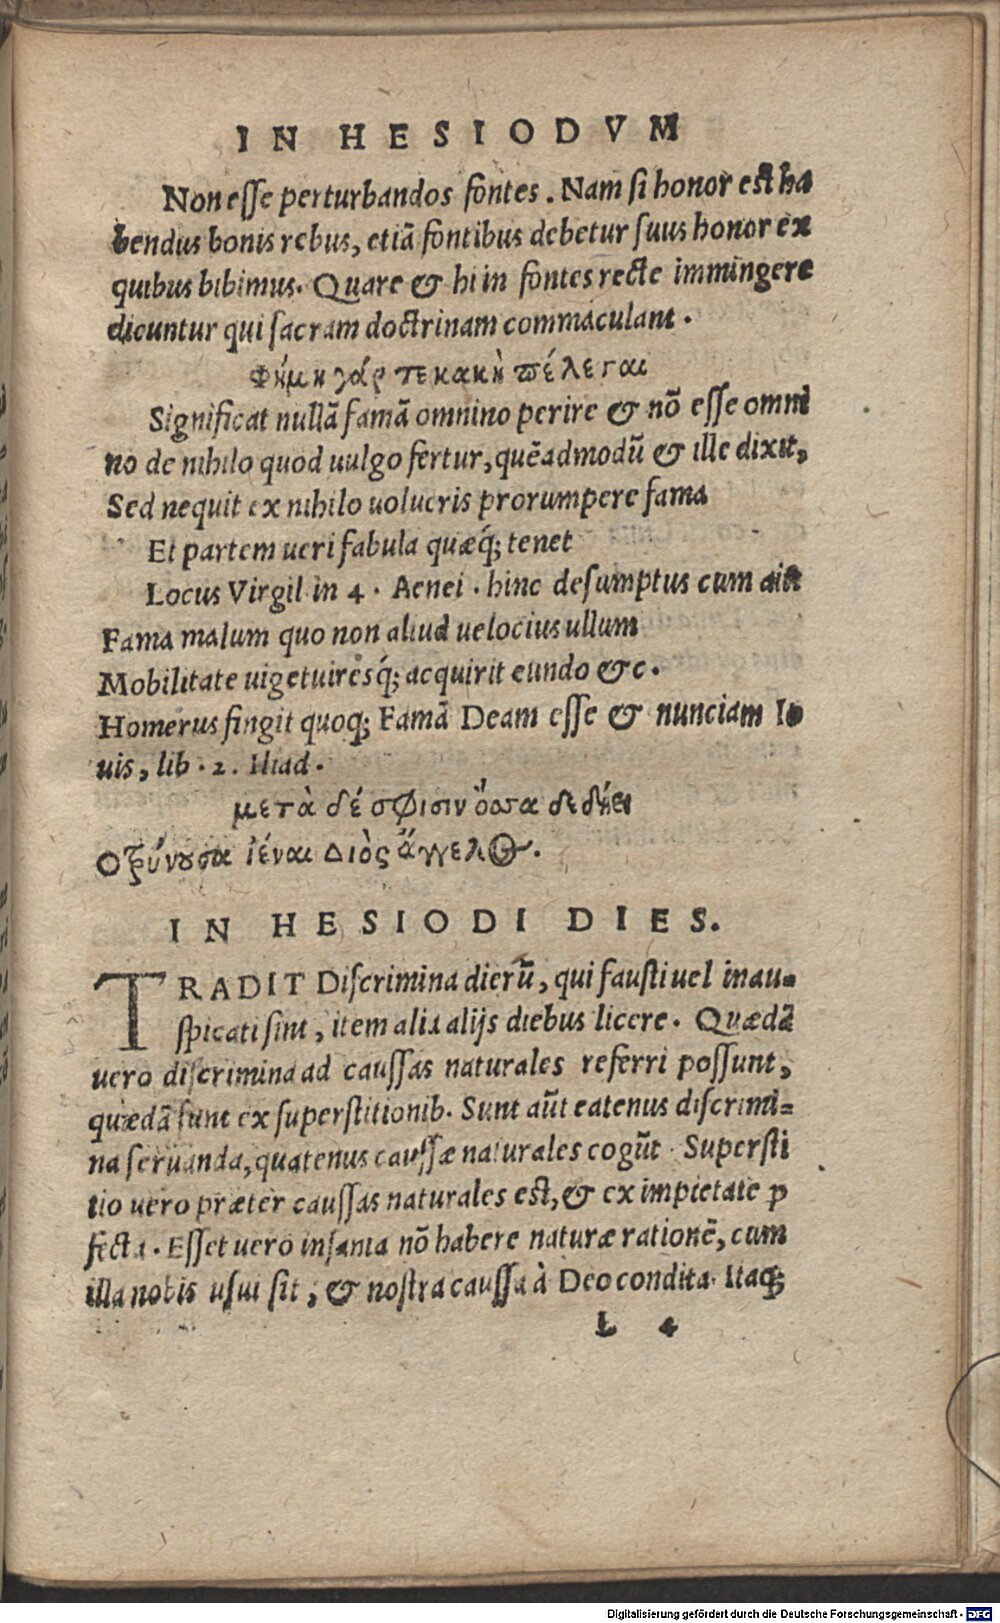 IN HESIODVM
Non esse perturbandos fontes. Nam si honor est ha
bendus bonis rebus, etiā fontibus debetur suus honor ex
quibus bibimus. Quare & hi in fontes recte immingere
dicuntur qui sacram doctrinam commaculant.
Φήμη γάρ τε κακὴ πέλεται
Significat nullā famā omnino perire & nō esse omni
no de nihilo quod uulgo fertur, quēadmodū & ille dixit,
Sed nequit ex nihilo uolucris prorumpere fama
Et partem ueri fabula quæq́; tenet
Locus Virgil in 4. Aenei. hinc desumptus cum ait
Fama malum quo non aliud uelocius ullum
Mobilitate uiget uiresq́; acquirit eundo &c.
Homerus fingit quoq; Famā Deam esse & nunciam Io
uis, lib. 2. Iliad.
μετὰ δέ σφισιν ὄσσα δεδήει
Οτρύνουσα ἰέναι Διὸς ἄγγελος.
IN HESIODI DIES.
TRADIT Discrimina dierū, qui fausti uel inau-
spicati sint, item alia alijs diebus licere. Quædā
uero discrimina ad caussas naturales referri possunt,
quædā sunt ex superstitionib. Sunt aūt eatenus discrimi=
na seruanda, quatenus caussæ naturales cogūt. Supersti
tio uero præter caussas naturales est, & ex impietate p
fecta. Esset uero insania nō habere naturæ rationē, cum
illa nobis usui sit, & nostra caussa à Deo condita. Itaq;
L 4
Digitalisierung gefördert durch die Deutsche Forschungsgemeinschaft - DFG